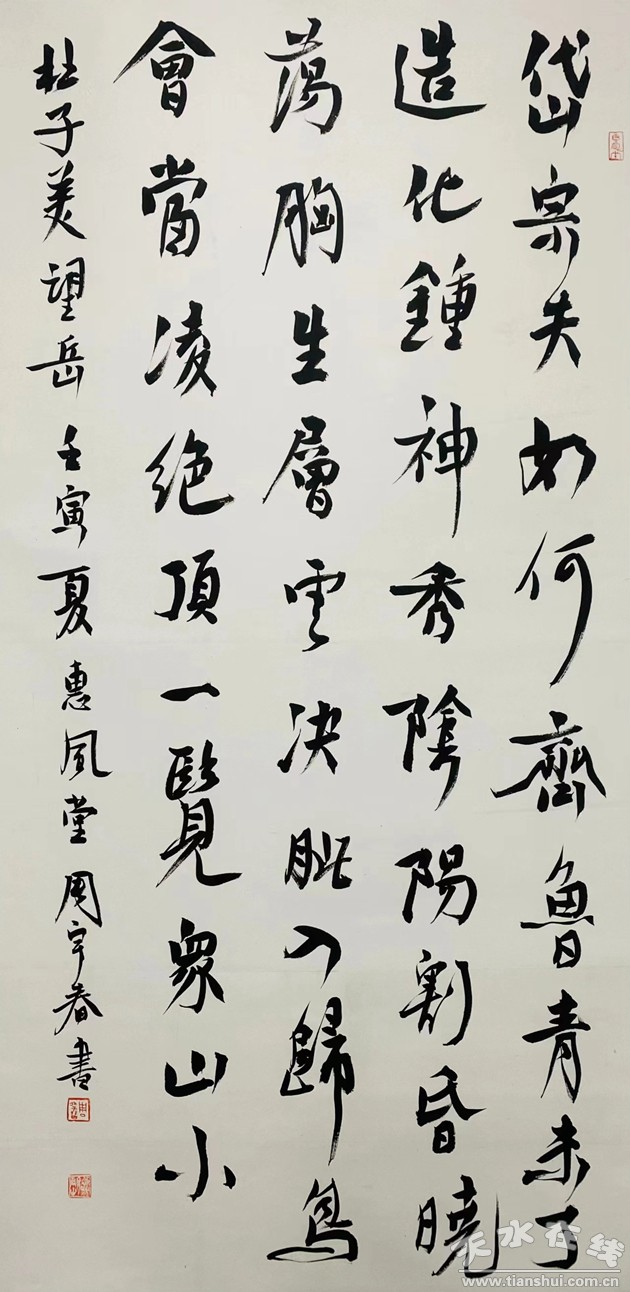 岱宗夫如何齊魯青未了
造化鍾神秀陰陽割昏曉
蕩胸生層雲决眦入歸鳥
會當凌絶頂一覽衆山小
杜子美望岳壬寅夏惠風堂周宇春書
天水在线
www.tianshui.com.cn